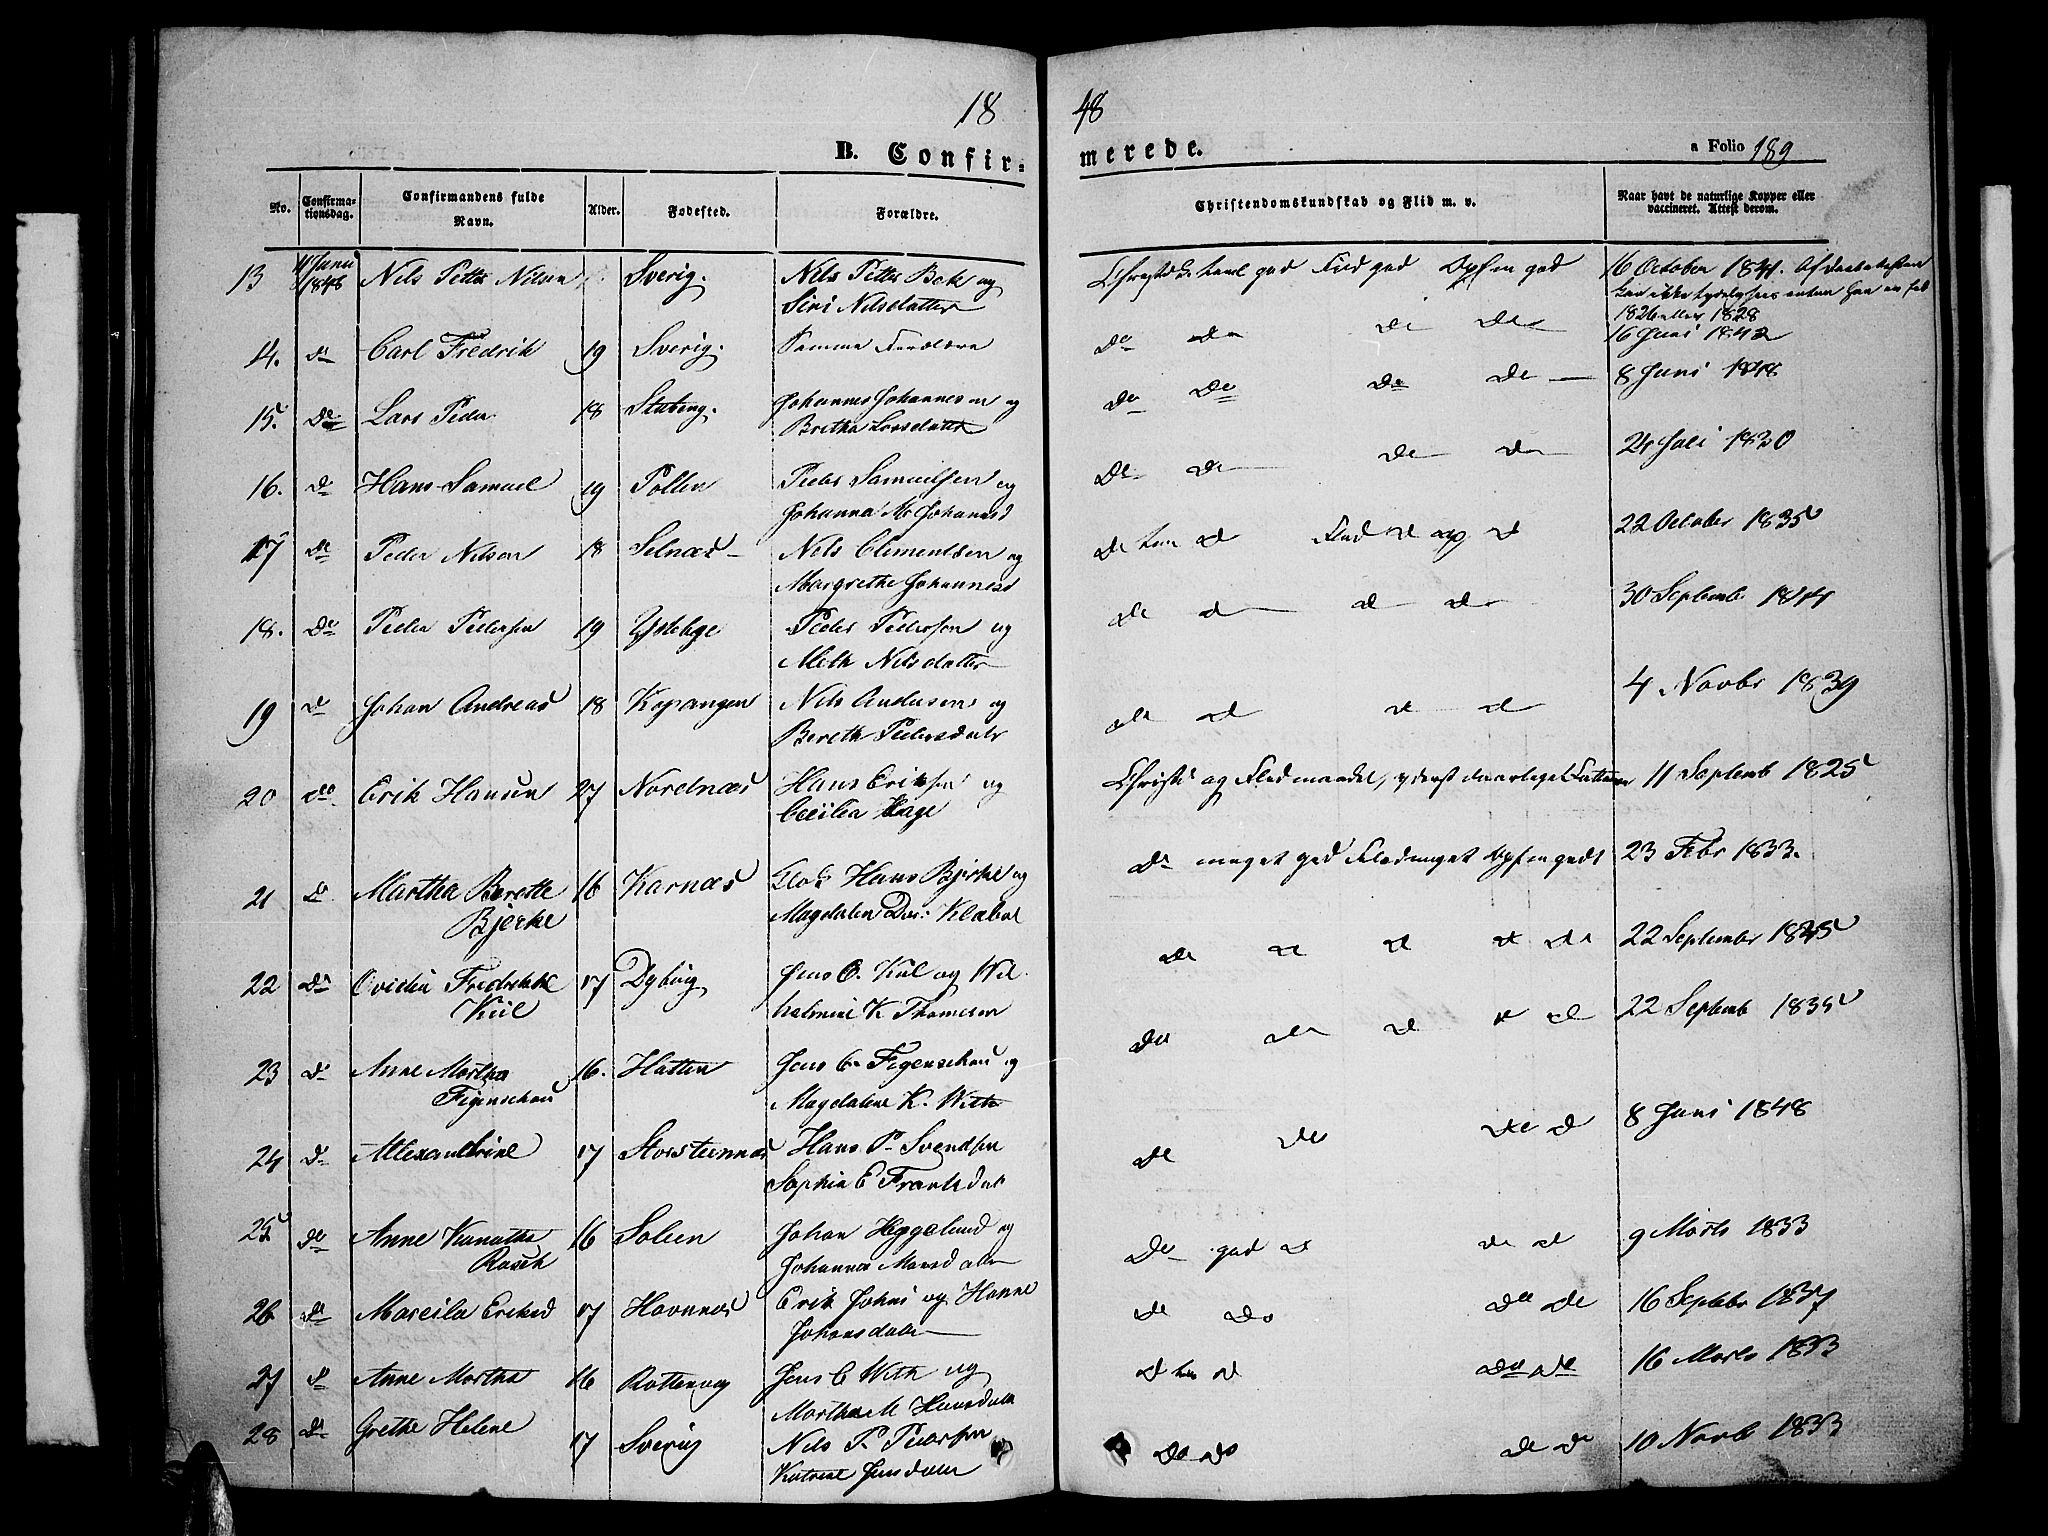 18 48
B. Confir- merede.
a Folio 189
No. Confirma-tionsdag. Confirmandens fulde Navn. Alder. Fødested. Forældre. Christendomskundskab og Flid m. v. Naar havt de naturlige Kopper eller vaccineret. Attest derom.
13 11 Juni 1848 Nils Petter Nilsen Sverig. Nils Petter Bek og Flid god Opf en god 16 October 1841.
Siri Nilsdatter
1826 eller 1828
4. do Carl Fredrik 19 Sverig. Samme Forældre do do do do 16 Juni 1842
15. do Lars Peder 18 Johannes Johannesen og do do do do 8 Juni 1848
Bretha Larsdatter
16. do Hans Samuel 19 Pollen Peder Samuelsen og do do do do 24 Juli 1830
Johanna M. Johannesd
17 do Peder Nilsen 18 Selnæs Nils Clementsen og do do Flid do op do 22 October 1835
Margrethe Johannesd
18. do Peder Pedersen 19 Peder Pedersen og do do do do 30 Septemb. 1844
Meth Nilsdatter
19 do Johan Andreas 18 Kopangen Nils Andersen og do do do do 4 Novbr 1839
Bereth Pedersdatr
20 do Erik Hansen 27 Nordnæs Hans Eriksen og Christd og Flid maadel, yderst daarlige 11 Septemb 1825
Cecilia Hage
21 do Martha Berette 16 Karnæs Hans Bjerke og do meget god Flid meget Opf en god 23 Febr 1833.
Bjerke Magdalen Klæboe
22 do Ovidia Fredrikke 17 Dybvig Jens O. Kiil og Wil- do do do do do 22 September 1835
Kiil helmine K Thomesen
23 do Anne Martha 16. Hatten Jens C. Figenschou og do do do do do 22 Septemb 1835
Figenschou Magdalene K. With
24 do Alexandrine 17 Storsteinnæs Hans P. Svendsen do do do do 8 Juni 1848
Sophia E Frantsdat
25 do Anne Kanutha 16 Solven Johan Heggelund og do god do do do 9 Marts 1833
Rasch Johanna Monsdatter
26 do Marcila Eriksd 17 Havnnæs Erik Johns og Hanne do do do do 16 Septebr 1837
Johansdatter
27 do Anne Martha 16 Rottenvig Jens C With og do do do do 16 Marts 1833
Martha M Hansdatter
28 do Grethe Helene 17 Sverig Nils P. Pedersen do do do do 10 Novb 1833
Katrine Jensdatter